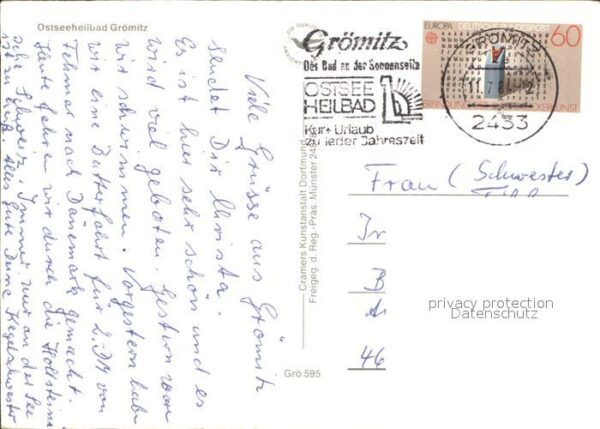 Ostseeheilbad Grömitz
Viele Grüsse aus Grömitz
sendet Dir Christa.
Es ist hier sehr schön und es
wird viel geboten. Gestern waren
wir schwimmen. Vorgestern haben
wir eine Butterfahrt für 2.DM von
Fehmarn nach Dänemark gemacht.
Heute fahren wir durch die Holsteini
sche Schweiz. Immer nur an der See
ist zu Alles Gute Deine Kegelschwester
Cramers Kunstanstalt Dortmund
Freigeg. d. Reg.-Präs. Münster
Grö 595
Grömitz
Das Bad an der Sonnenseite
OSTSEE
HEILBAD
Kur + Urlaub
zu jeder Jahreszeit
EUROPA DEUTSCHE BUNDESPOST
60
GRÖMITZ
2433
Frau (Schwester)
Jr
B
46
privacy protection
Datenschutz